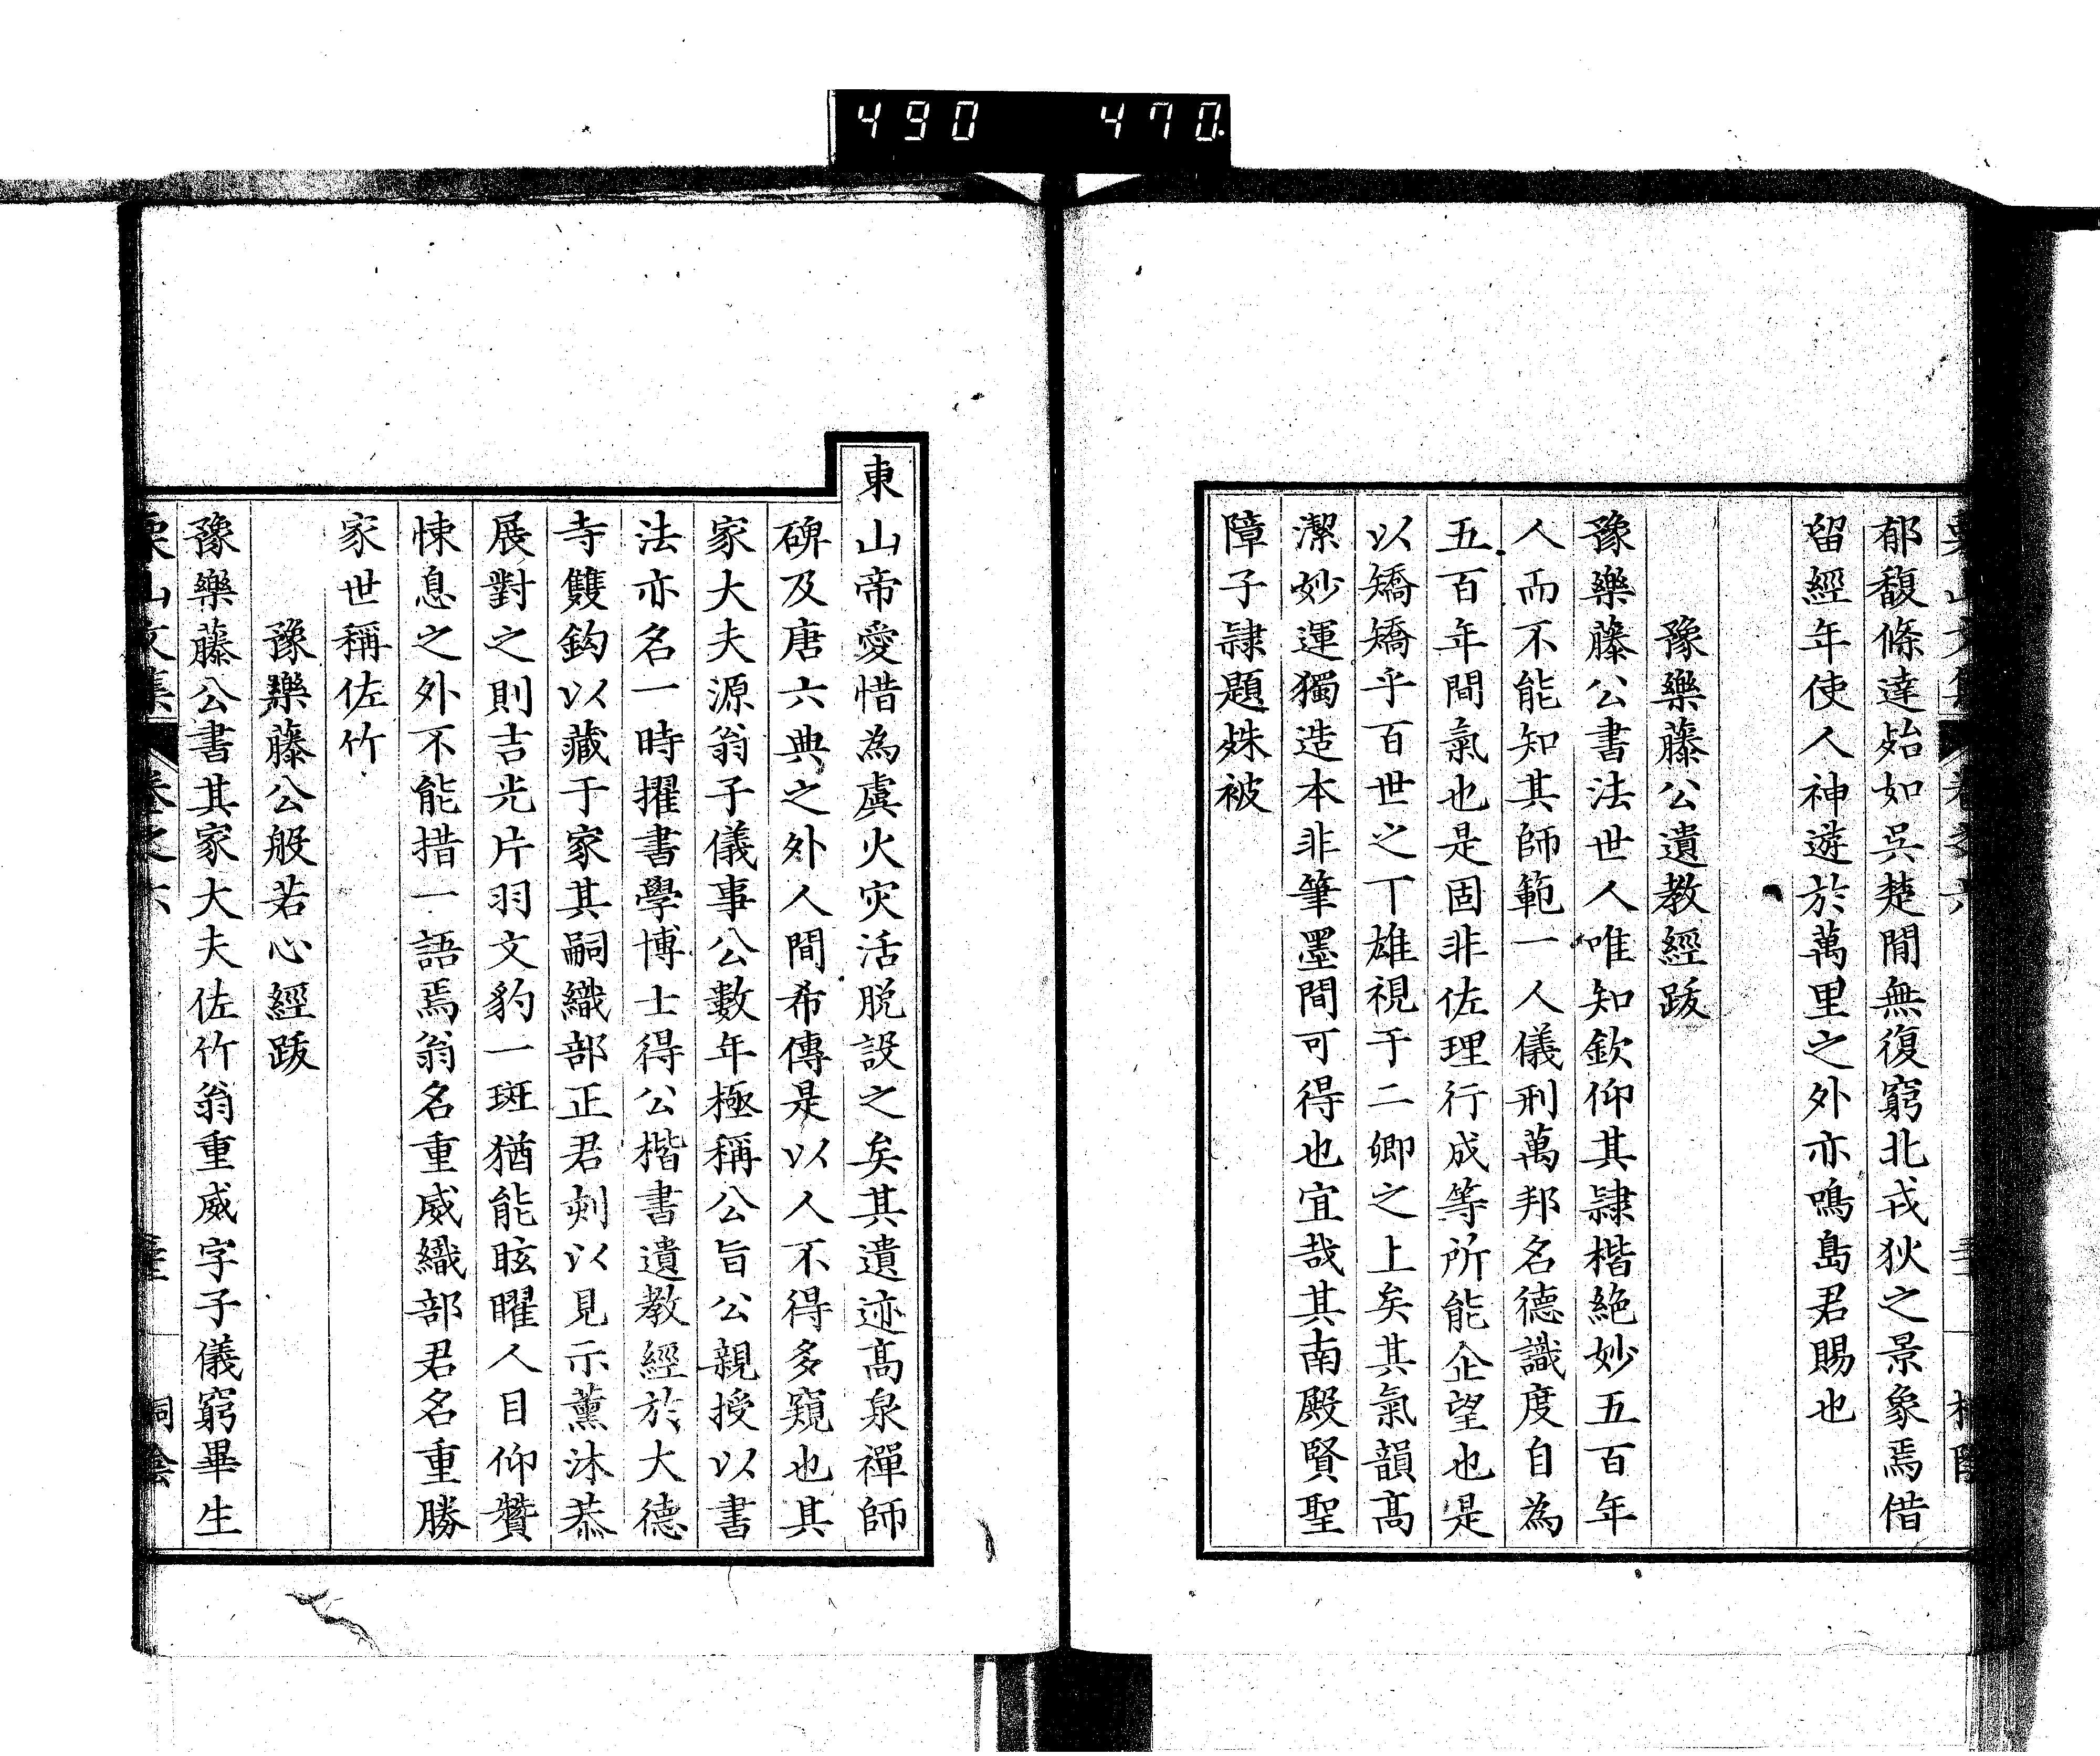 490 470.
郁馥條達始如呉楚間無復窮北戎狄之景象焉借
留經年使人神遊於萬里之外亦鳴島君賜也
豫樂藤公遺教經跋
豫樂藤公書法世人唯知欽仰其隷楷絶妙五百年
人而不能知其師範一人儀刑萬邦名德識度自為
五百年間氣也是固非佐理行成等所能企望也是
以矯矯乎百世之丅雄視于二卿之上矣其氣韻髙
潔妙運獨造本非筆墨間可得也宜哉其南殿賢聖
障子隷題姝被
東山帝愛惜為虞火灾活脱設之矣其遺迹髙泉禪師
碑及唐六典之外人間希傳是以人不得多窺也其
家大夫源翁子儀事公數年極稱公旨公親授以書
法亦名一時擢書學博士得公楷書遺教經於大德
寺雙鈎以藏于家其嗣織部正君刾以見示薫沐恭
展對之則吉光片羽文豹一斑猶能眩矅人目仰贊
悚息之外不能措一語焉翁名重威織部君名重勝
家世稱佐竹
豫樂藤公般若心經跋
豫樂藤公書其家大夫佐竹翁重威字子儀窮畢生
栗山文集 卷之六